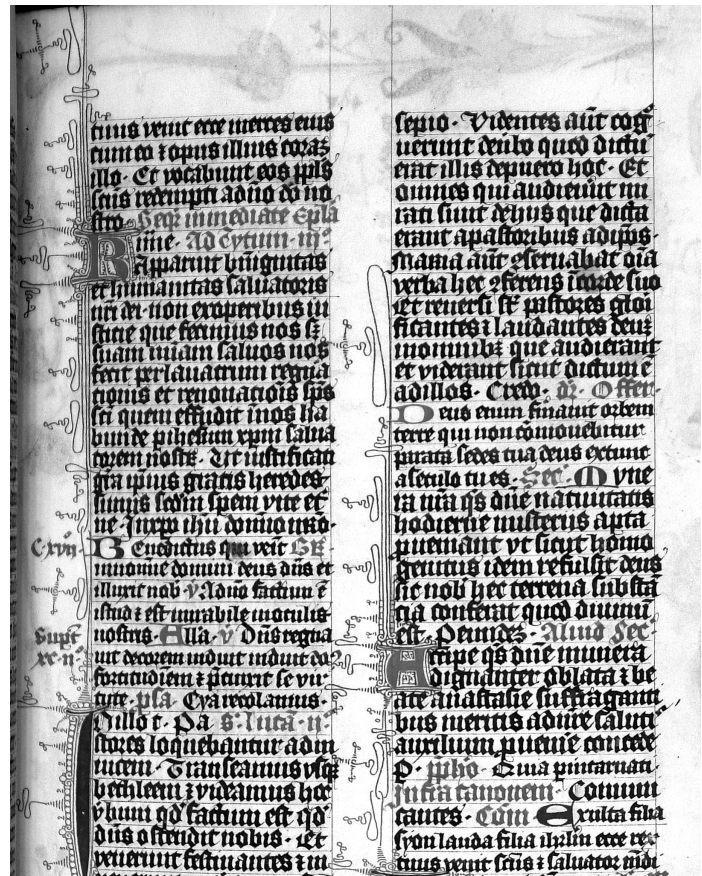 tuus venit ecce merces eius
cum eo ⁊ opus illius coraȝ
illo. Et vocabunt eos ppl̄s
sc̄us redempti adn̄o dō no
stro. Seqr̄ immediate Ep̄la
ime. Ad Tytum. iiiº
Apparuit bn̄ignitas
et humanitas saluatoris
nr̄i dei. non exoperibus iu
sticie que fecimus nos sȝ
suam mīam saluos nos
fecit per lauacrum regna
cionis et renouacōis sp̄s
sc̄i quem effudit īnos ha
bunde p ih̄esum xp̄m salua
torem nostꝝ. Ut iustificati
gr̄a ipīus gratis heredes
simus scdm̄ spem vite et̄
ne. Inxp̄o ih̄u domino nr̄o.
Cxvii. Benedictus qui veīt Gr̄.
innomine domini deus dn̄s et
illuxit nob̄ v̄. Adn̄o factum ē
istud ⁊ est mirabile inoculis
nostris. Alla. v̄ Dn̄s regna
uit decorem induit induit dō
fortitudiem ⁊ p̄cinxit se vir
tute. psa. Cya recolamus.
In illo t̄. Pa s. luca. ii.
stores loquebantur adin
uicem. Transeamus vsqȝ
bethleem ⁊ videamus hoc
v̄bum qd̄ factum est qd̄
dn̄s ostendit nobis. Et
venerunt festinantes ⁊ in
sepio. Videntes aūt cog
uerunt deūbo quod dictū
erat illis depuero hoc. Et
omnes qui audierūt mi
rati sunt dehiis que dicta
erant apastoribus adip̄os.
Maria aūt ꝯseruabat oīa
verba hec ꝯferens īcorde suo
Et reuersi sꝭ pastores gloī
ficantes ⁊ laudantes deuȝ
inomnibȝ que audierant
et viderant sicut dictum ē
adillos. Credo. dr̄. Offer.
Deus enim firmauit orbem
terre qui non cōmouebitur
parata sedes tua deus extunc
aseculo tu es. Sec̄. Mune
ra nr̄a q̄s dn̄e natiuitatis
hodierne misteriis apta
proueniant vt sicut homo
genitus idem refulsit deus
sic nob̄ hec terrena substā
cia conferat quod diuinū
est. P eundeȝ. Aliud Sec̄.
Accipe q̄s dn̄e munera
dignanter oblata ⁊ be
ate anastasie suffraganti
bus meritis adn̄re saluti
auxilium p̄uenire concede
P. p̄fho. Quia p incarnati.
Infra canonem. Comuni
cantes. Com̄ Exulta filia
syon lauda filia ih̄rlm̄ ecce rex
tuus venit sc̄us ⁊ saluator mūdi